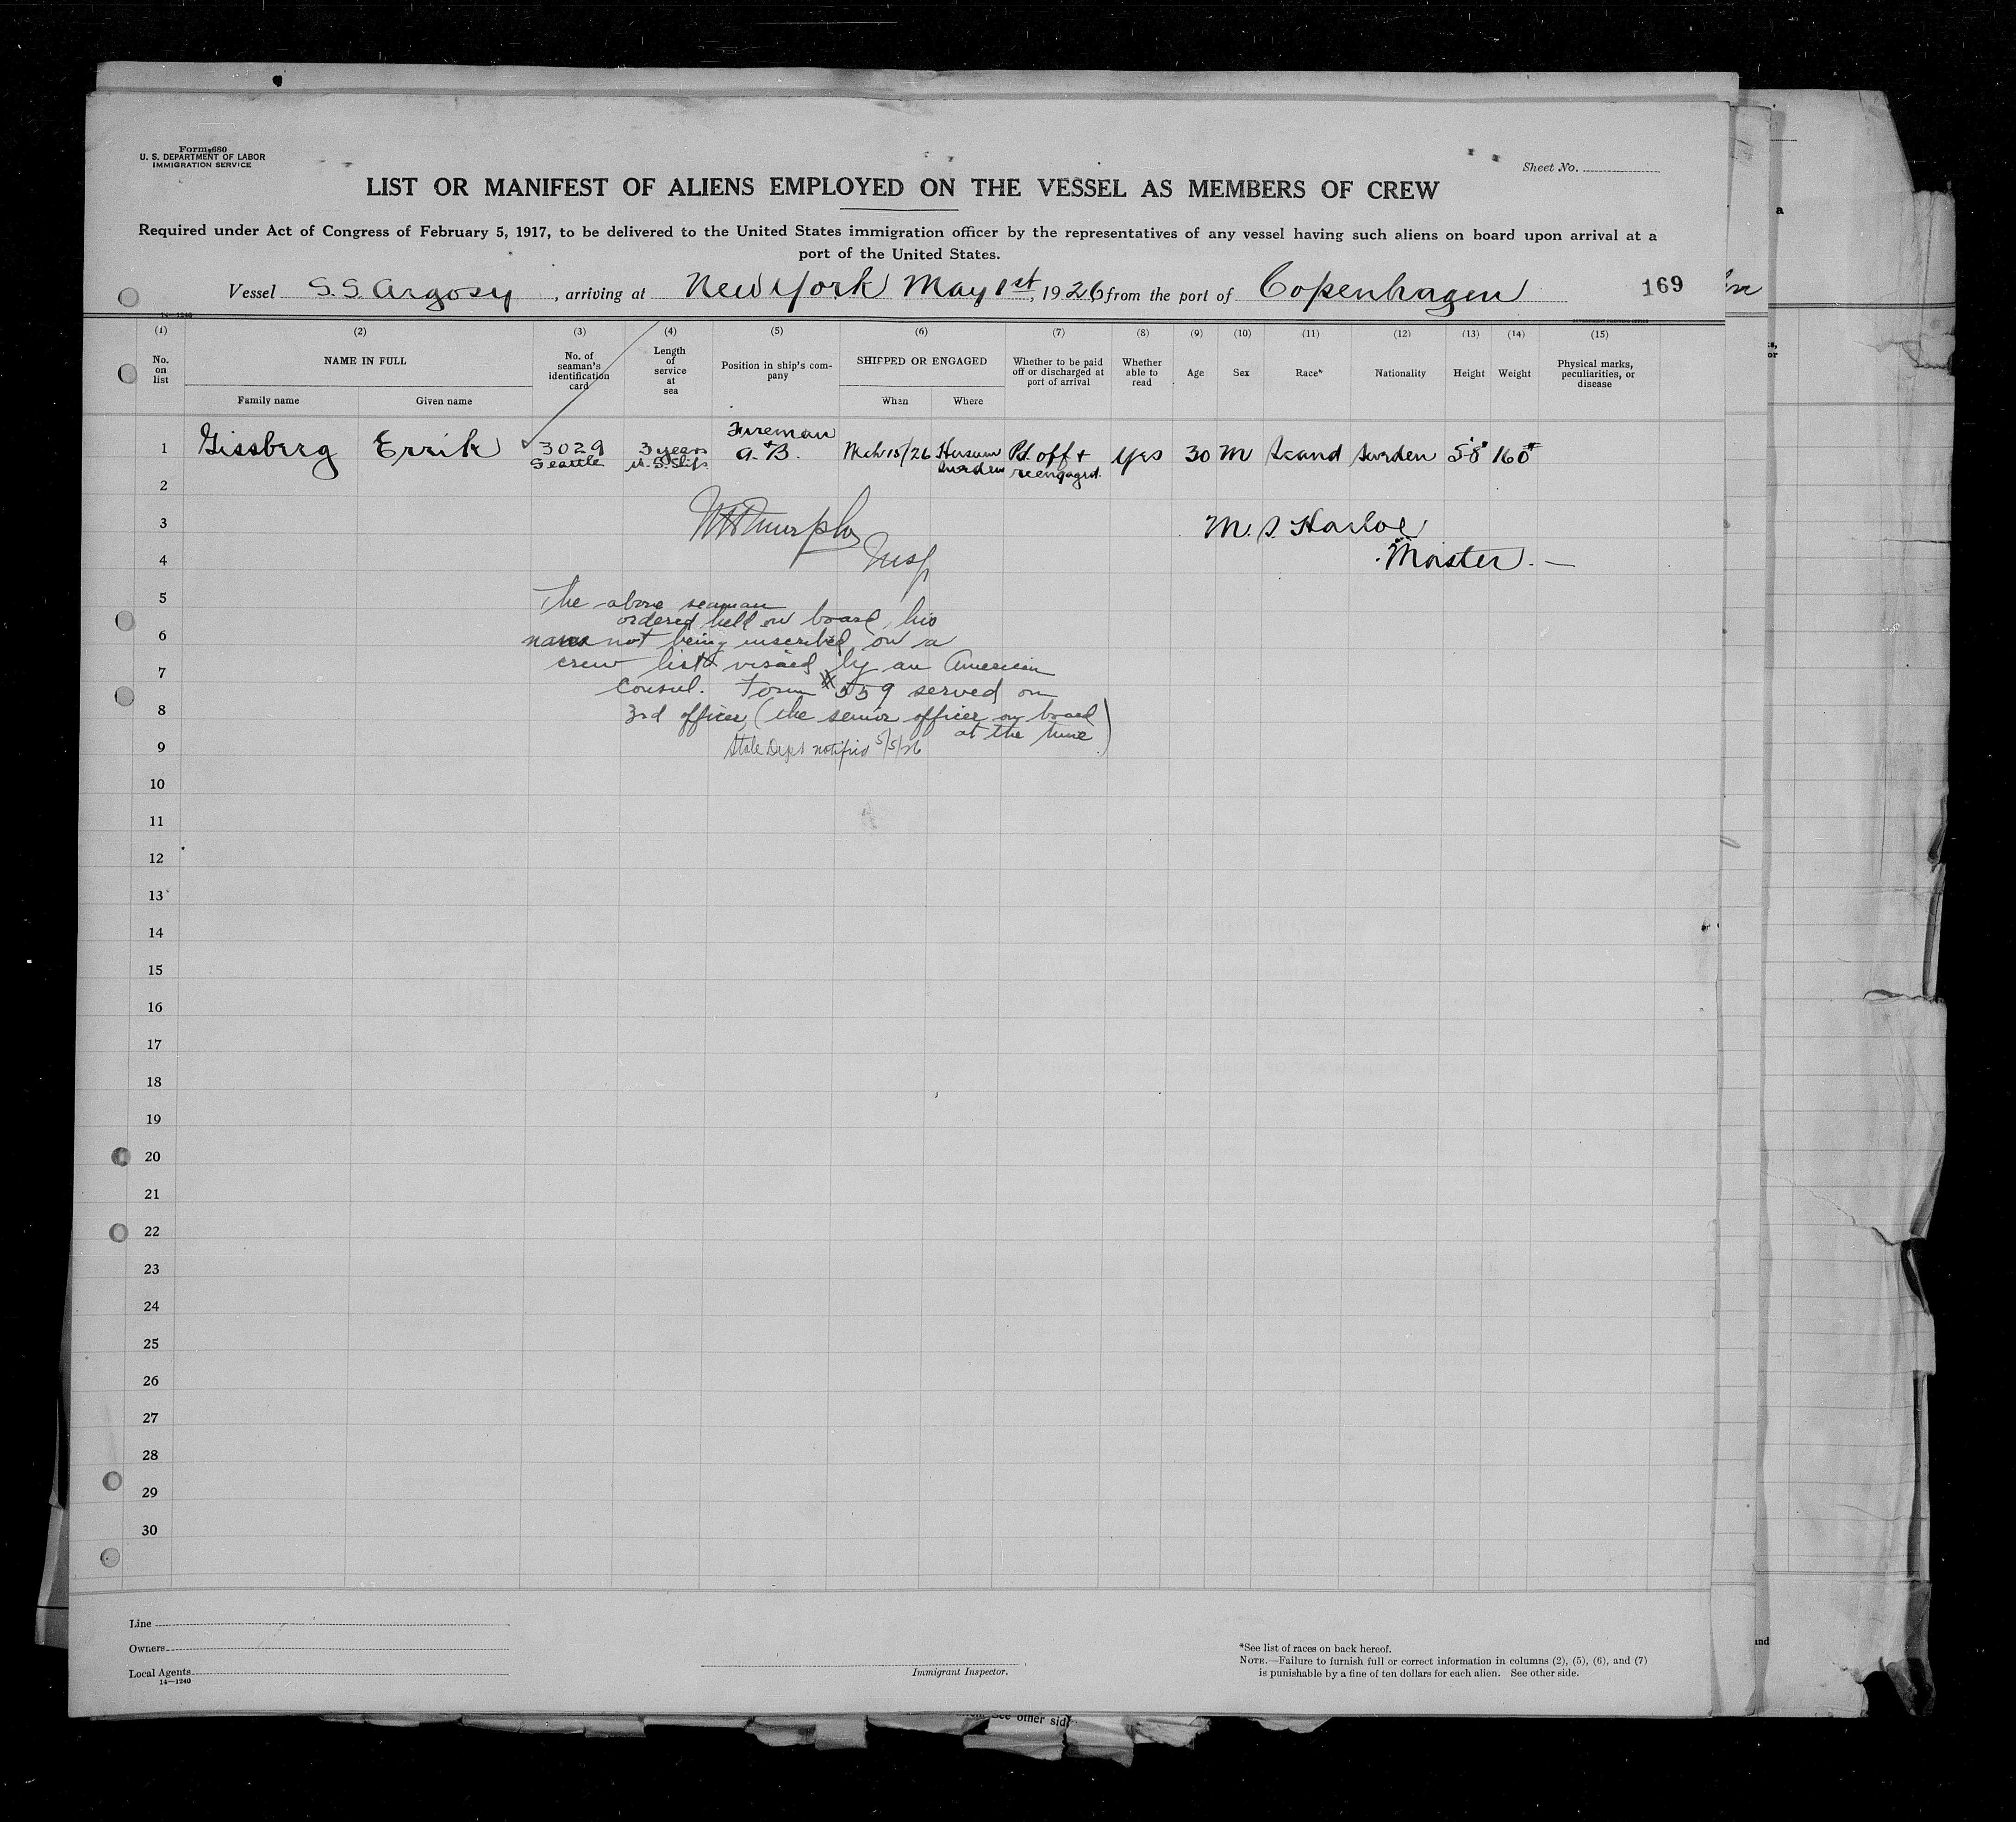 Form 680
U. S. DEPARTMENT OF LABOR
IMMIGRATION SERVICE
Sheet No.
LIST OR MANIFEST OF ALIENS EMPLOYED ON THE VESSEL AS MEMBERS OF CREW
Required under Act of Congress of February 5, 1917, to be delivered to the United States immigration officer by the representatives of any vessel having such aliens on board upon arrival at a
port of the United States.
Vessel S.S. Argosy, arriving at New York May 1st, 1926 from the port of Copenhagen 169
14—1240
(1) (2) (3) (4) (5) (6) (7) (8) (9) (10) (11) (12) (13) (14) (15)
No. on list NAME IN FULL No. of seaman's identification card Length of service at sea Position in ship's company SHIPPED OR ENGAGED Whether to be paid off or discharged at port of arrival Whether able to read Age Sex Race* Nationality Height Weight Physical marks, peculiarities, or disease
Family name Given name When Where
Fireman
1 Gissberg Errik 3029 3 years + A.B. Mch 15/26 Sweden Pd. off + yes 30 M Scand Sweden 5'8" 160#
Seattle U.S. Ships reengaged.
2
3 Murphy M. S. Harloe
4 Insp Master.—
5 The above seaman
ordered held on board, his
6 name not being inscribed on a
7 crew list visaed by an American
Consul. Form #559 served on
8 3rd officer, (the senior officer on board
at the time)
9 State Dept notified 5/5/26
10
11
12
13
14
15
16
17
18
19
20
21
22
23
24
25
26
27
28
29
30
Line
Owners
Local Agents
14—1240
Immigrant Inspector.
*See list of races on back hereof.
NOTE.—Failure to furnish full or correct information in columns (2), (5), (6), and (7)
is punishable by a fine of ten dollars for each alien. See other side.
See other side